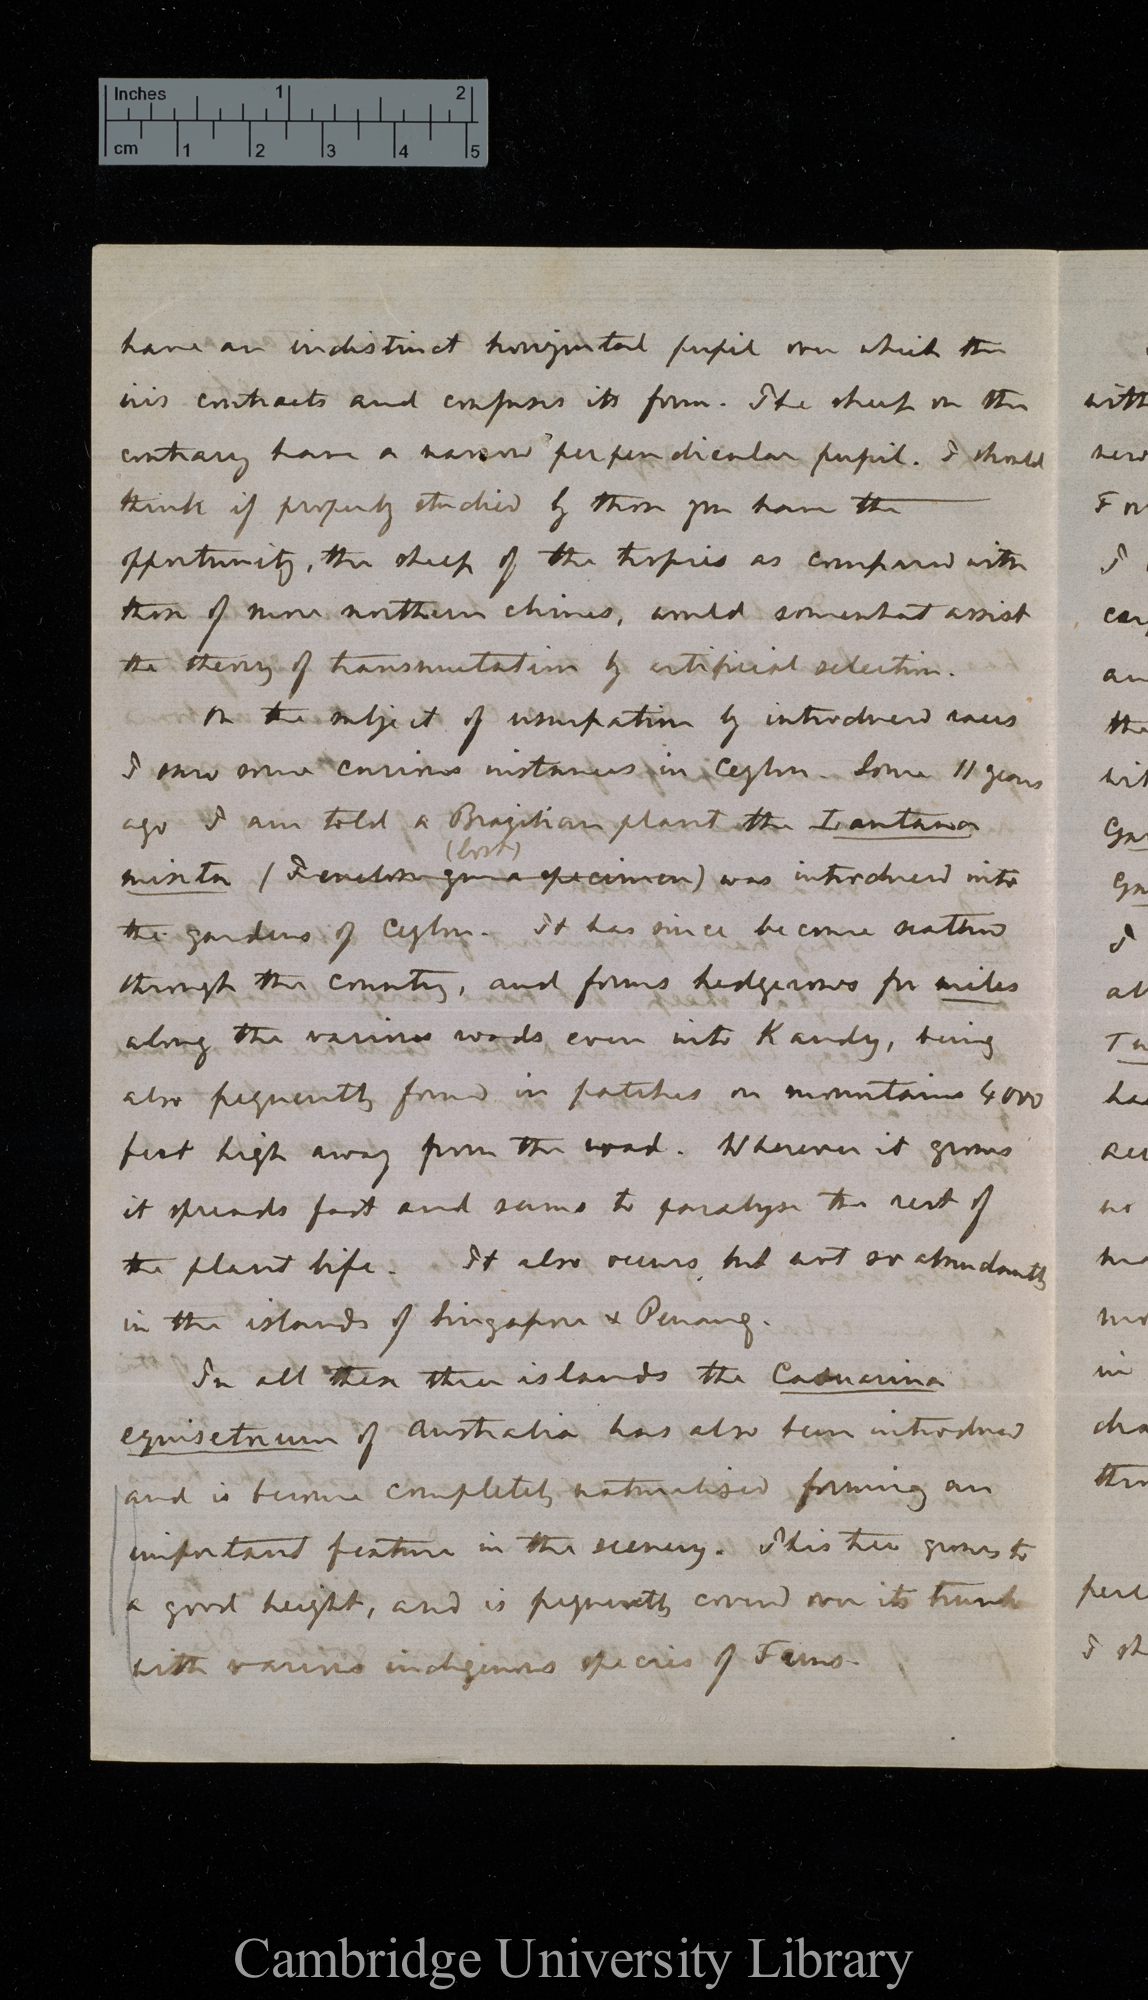 Inches 1 2
cm 1 2 3 4 5
have an indistinct horizontal pupil over which the
iris contracts and confuses its form. The sheep on the
contrary have a narrow perpendicular pupil. I should
think if properly studied by those you have the
opportunity, the sheep of the tropics as compared with
those of more northern climes, would somewhat assist
the theory of transmutation by artificial selection.
On the subject of usurpation by introduced races
I saw some curious instances in Ceylon. Some 11 years
ago I am told a Brazilian plant the Lantana
(lost)
mixta (I enclose you a specimen) was introduced into
the gardens of Ceylon. It has since become scattered
through the country, and forms hedgerows for miles
along the various roads even into Kandy, being
also frequently found in patches on mountains 4000
feet high away from the road. Wherever it grows
it spreads fast and seems to paralyse the rest of
the plant life. It also occurs, but not so abundantly
in the islands of Singapore & Penang.
In all these three islands the Casuarina
equisetneum of Australia has also been introduced
and is become completely naturalised forming an
important feature in the scenery. This tree grows to
a good height, and is frequently covered over its trunk
with various indigenous species of Ferns.
with
I
the
in
I sh
Cambridge University Library